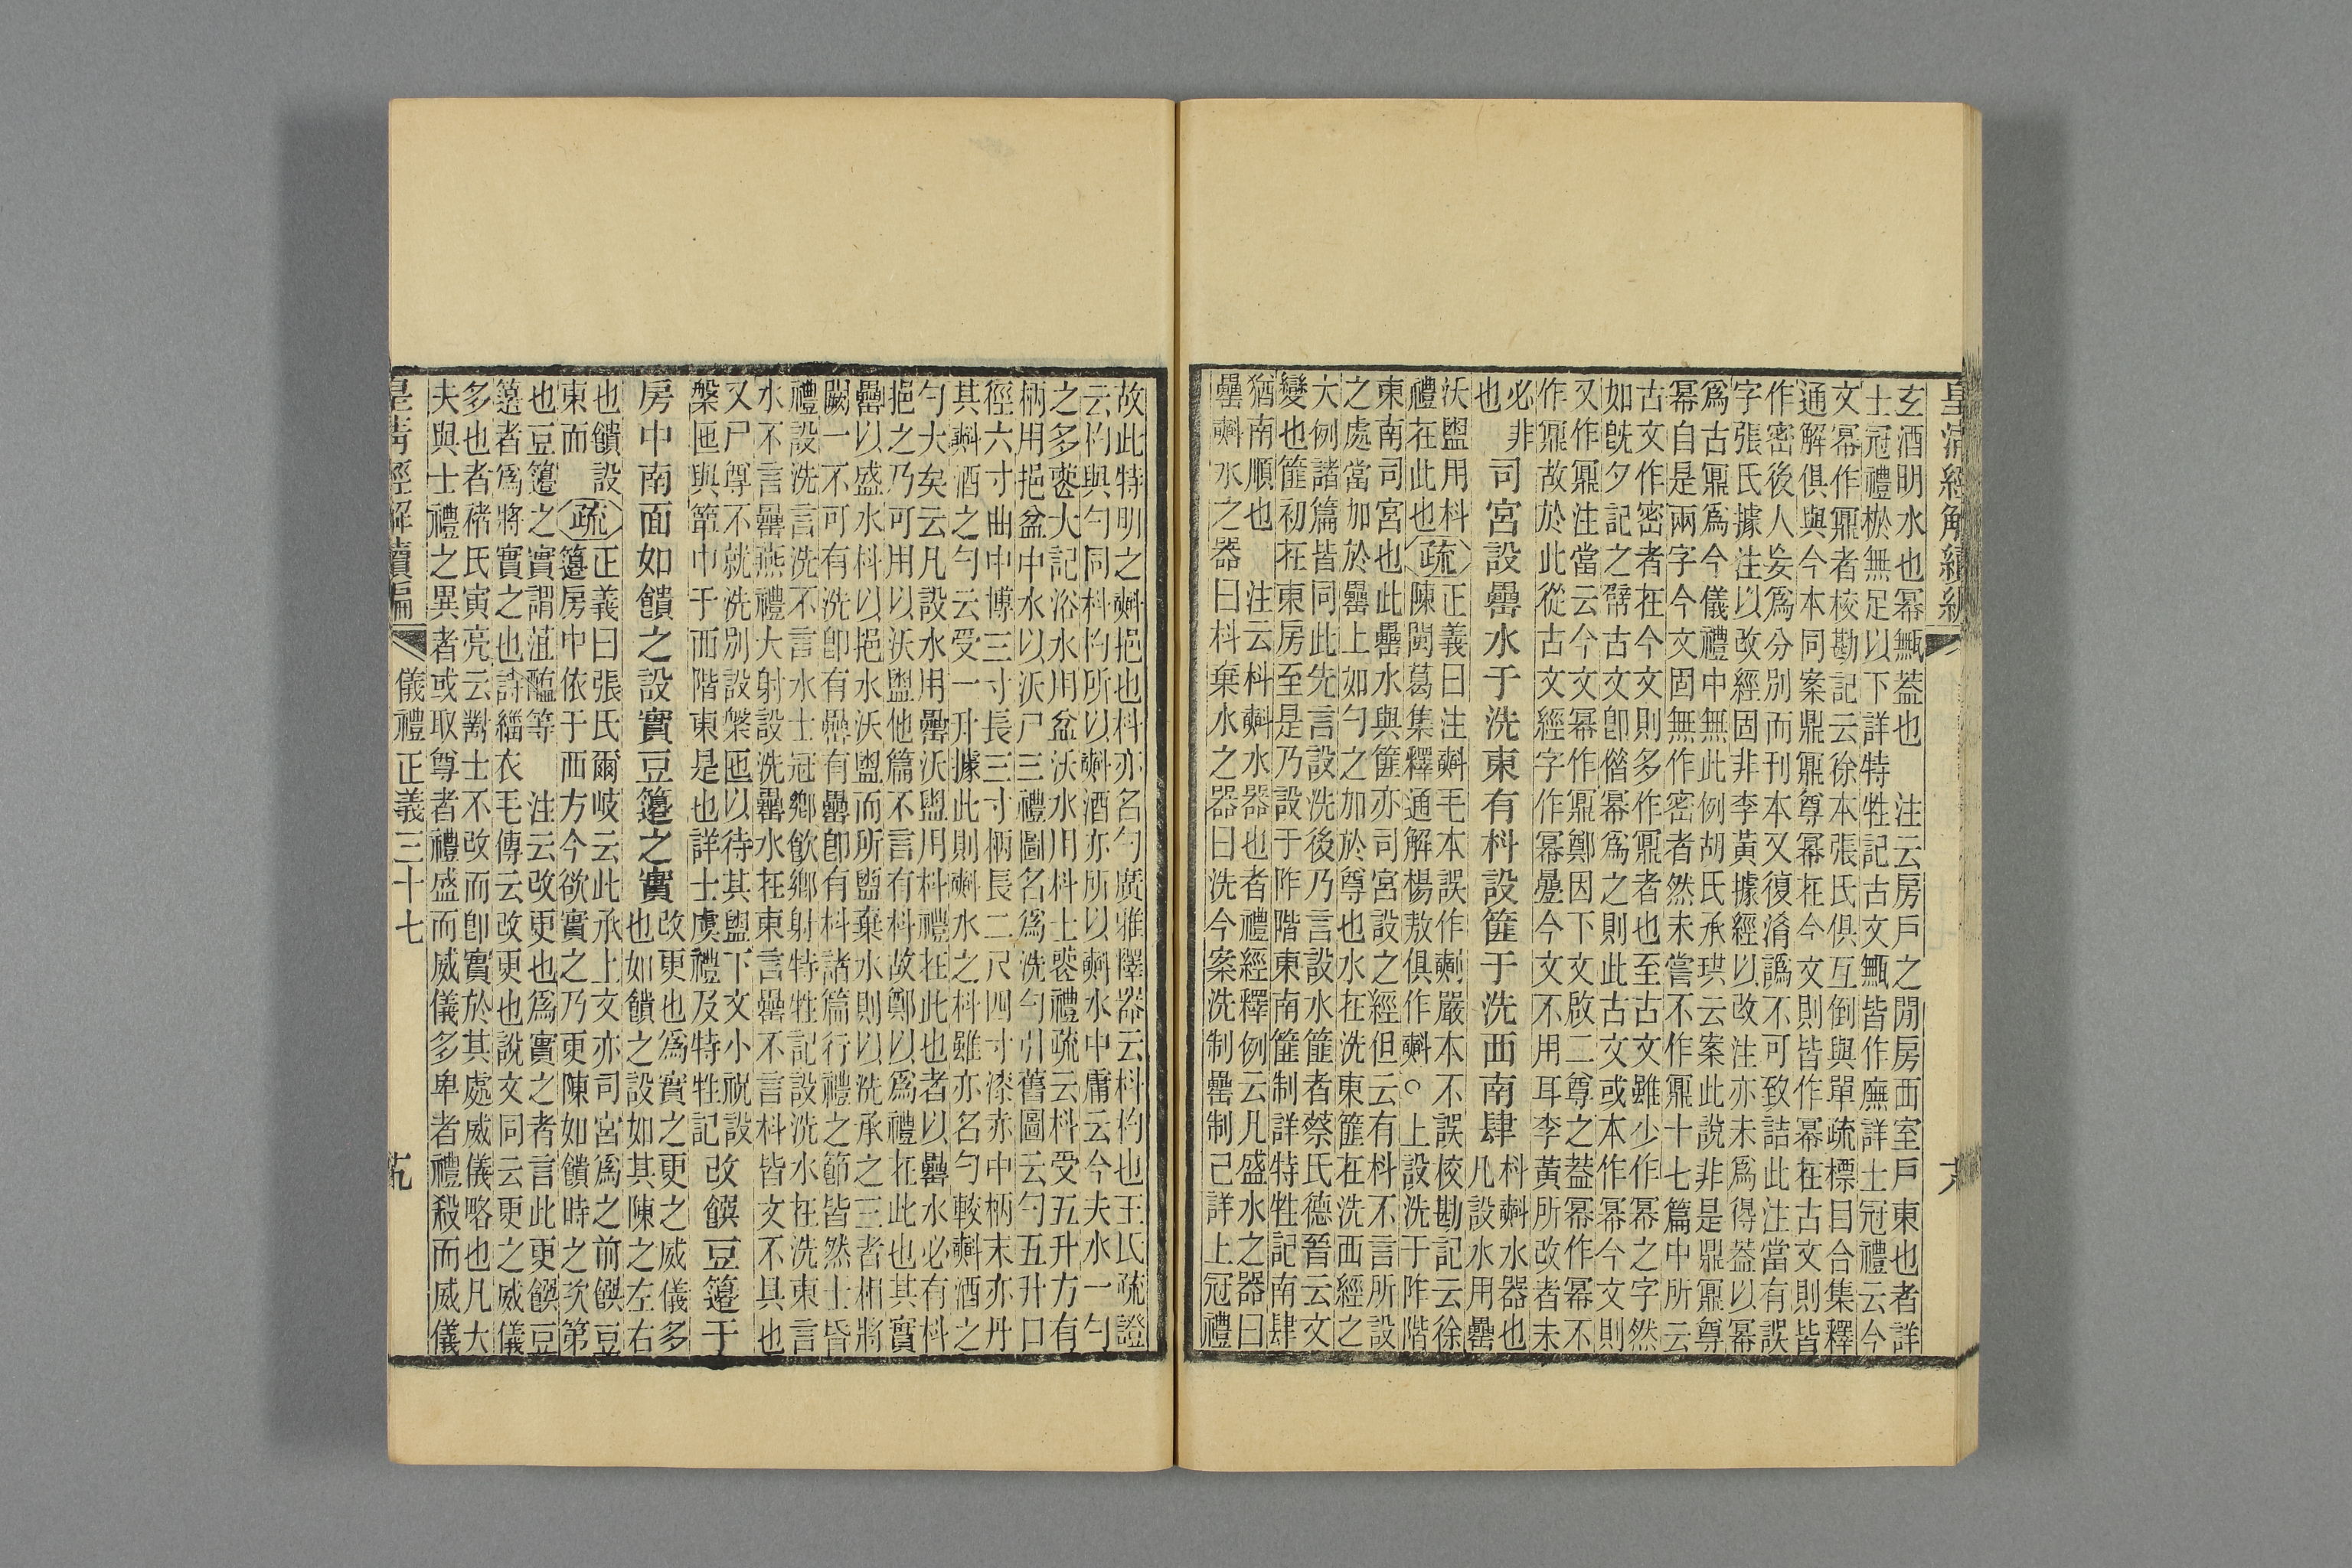 皇清經解續編
玄酒明水也冪甒蓋也　注云房戶之閒房西室戶東也者詳
士冠禮棜無足以下詳特牲記古文甒皆作廡詳士冠禮云今
文冪作鼏者校勘記云徐本張氏俱互倒與單疏標目合集釋
通解俱與今本同案鼎鼏尊冪在今文則皆作冪在古文則皆
作密後人妄爲分別而刊本又復淆譌不可致詰此注當有誤
字張氏據注以改經固非李黃據經以改注亦未爲得蓋以冪
爲古鼏爲今儀禮中無此例胡氏承珙云案此說非是鼎鼏尊
冪自是兩字今文固無作密者然未嘗不作鼏十七篇中所云
古文作密者在今文則多作鼏者也至古文雖少作冪之字然
如旣夕記之幦古文卽偕冪爲之則此古文或本作冪今文則
又作鼏注當云今文冪作鼏鄭因下文啟二尊之蓋冪作冪不
作鼏故於此從古文經字作冪疊今文不用耳李黃所改者未
必非
也　司宮設罍水于洗東有枓設篚于洗西南肆
枓㪺水器也
凡設水用罍
沃盥用枓
禮在此也疏正義曰注㪺毛本誤作㪺嚴本不誤校勘記云徐
陳閩葛集釋通解楊敖俱作㪺○上設洗于阼階
東南司宮也此罍水與篚亦司宮設之經但云有枓不言所設
之處當加於罍上如勺之加於尊也水在洗東篚在洗西經之
大例諸篇皆同此先言設洗後乃言設水篚者蔡氏德晉云文
變也篚初在東房至是乃設于阼階東南篚制詳特牲記南肆
猶南順也　注云枓㪺水器也者禮經釋例云凡盛水之器曰
罍㪺水之器曰枓棄水之器曰洗今案洗制罍制已詳上冠禮
故此特明之㪺挹也枓亦名勺廣雅釋器云枓杓也王氏疏證
云杓與勺同枓杓所以㪺酒亦所以㪺水中庸云今夫水一勺
之多喪大記浴水用盆沃水用枓士喪禮疏云枓受五升方有
柄用挹盆中水以沃尸三禮圖名爲洗勺引舊圖云勺五升口
徑六寸曲中博三寸長三寸柄長二尺四寸漆赤中柄末亦丹
其㪺酒之勺云受一升據此則㪺水之枓雖亦名勺較㪺酒之
勺大矣云凡設水用罍沃盥用枓禮在此也者以罍水必有枓
挹之乃可用以沃盥他篇不言有枓故鄭以爲禮在此也其實
罍以盛水枓以挹水沃盥而所盥棄水則以洗承之三者相將
闕一不可有洗卽有罍有罍卽有枓諸篇行禮之節皆然士昏
禮設洗言洗不言水士冠鄉飮鄉射特牲記設洗水在洗東言
水不言罍燕禮大射設洗罍水在東言罍不言枓皆文不具也
又尸尊不就洗別設槃匜以待其盥下文小祝設
槃匜與簞巾于西階東是也詳士虞禮及特牲記　改饌豆籩于
房中南面如饋之設實豆籩之實
改更也爲實之更之威儀多
也如饋之設如其陳之左右
也饋設
東而　疏正義曰張氏爾岐云此承上文亦司宮爲之前饌豆
籩房中依于西方今欲實之乃更陳如饋時之次第
也豆籩之實謂菹醢等　注云改更也爲實之者言此更饌豆
籩者爲將實之也詩緇衣毛傳云改更也說文同云更之威儀
多也者褚氏寅亮云嚮士不改而卽實於其處威儀略也凡大
夫與士禮之異者或取尊者禮盛而威儀多卑者禮殺而威儀
皇清經解續編　儀禮正義三十七